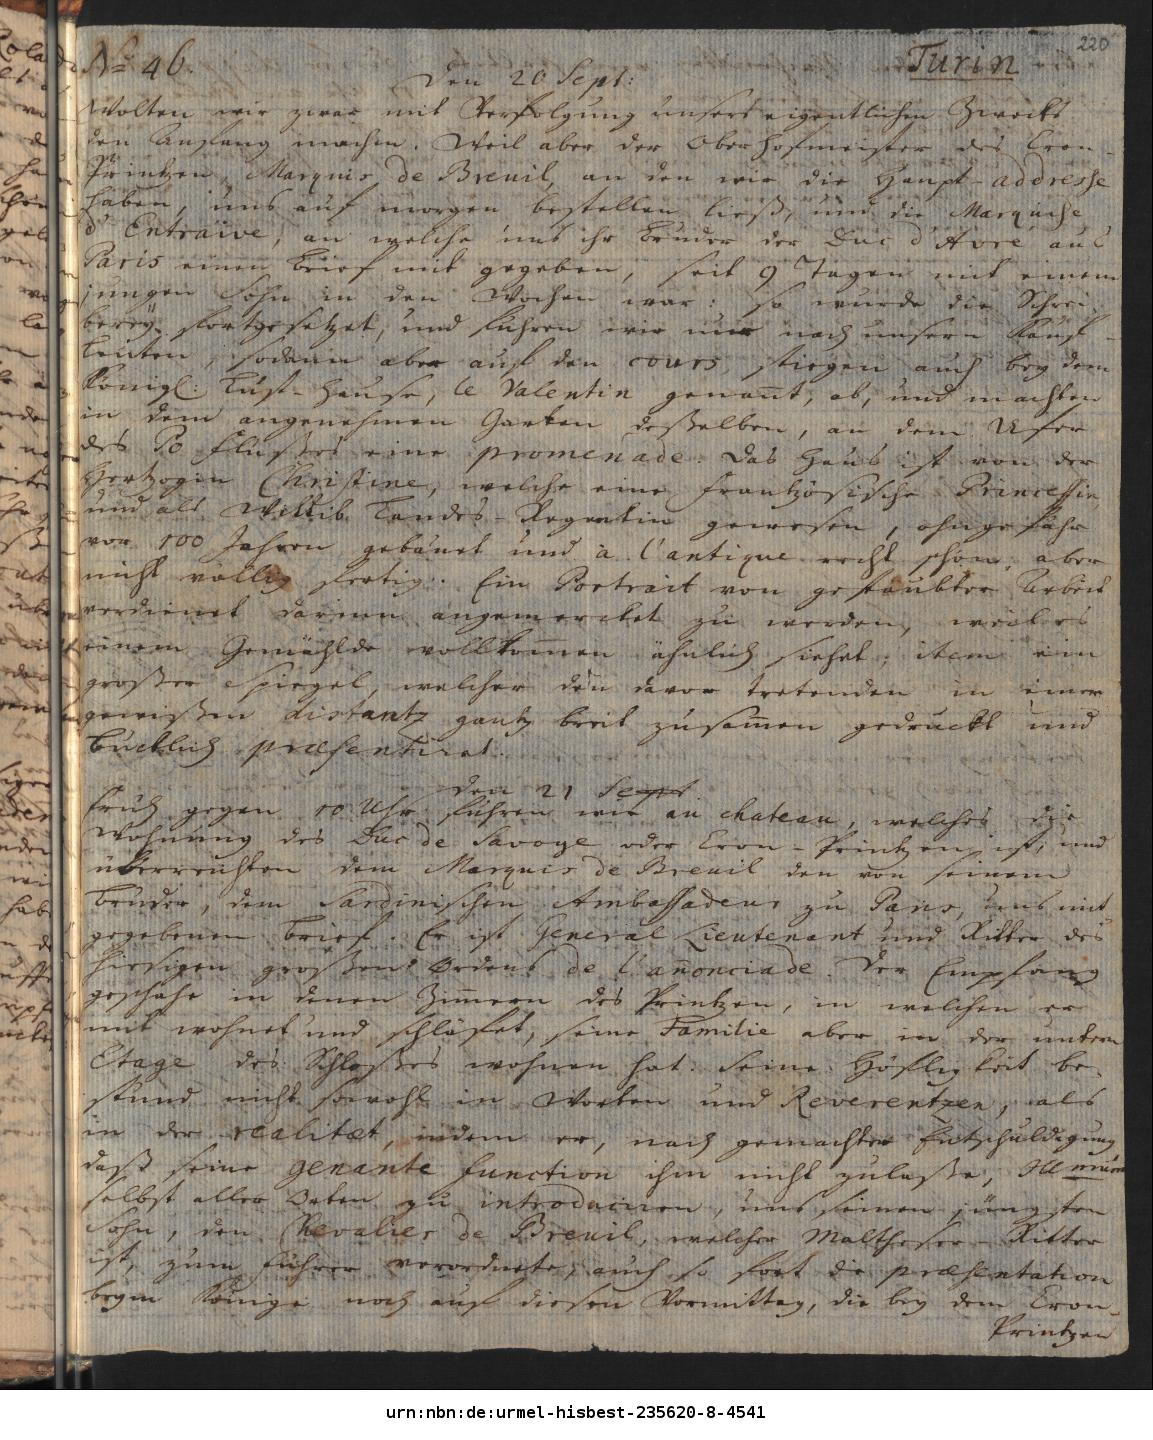 220
No 46.
Turin
Den 20 Sept:
Wolten wir zwar mit Verfolgung unsers eigentlichen Zwecks
den Anfang machen. Weil aber der Oberhofmeister des Cron-
Printzen, Marquis de Breuil, an den wir die Haupt-addresse
haben, uns auf morgen bestellen ließ, und die Marquise
d'Entraive, an welche uns ihr Bruder der Duc d'Avré aus
Paris einen Brief mit gegeben, seit 9 Tagen mit einem
jungen Sohn in den Wochen war: so wurde die Schrei-
berey fortgesetzet, und fuhren wir nur nach unsern Kauf-
leuten, sodann aber auf den cours, stiegen auch bey dem
Königl: Lust-Hause, le Valentin genañt, ab, und machten
in dem angenehmen Garten deßelben, an dem Ufer
des Po Flußes eine promenade. Das Haus ist von der
Hertzogin Christine, welche eine frantzösische Princessin,
und als Wittib Landes-Regentin gewesen, ohngefähr
vor 100 Jahren gebauet und à l'antique recht schön, aber
nicht völlig fertig. Ein Portrait von gestaubter Arbeit
verdienet darinn angemercket zu werden, weil es
einem Gemählde vollkom̃en ähnlich siehet; item ein
großer Spiegel, welcher den davor tretenden in einer
gewißen distantz gantz breit zusam̃en gedruckt und
bucklich præsentiret.
Den 21 Sept
Früh gegen 10 Uhr fuhren wir au chateau, welches die
Wohnung des Duc de Savoye oder Cron-Printzen ist, und
überreichten dem Marquis de Breuil den von seinem
Bruder, dem Sardinischen Ambassadeur zu Paris, uns mit
gegebenen Brief. Er ist General Lieutenant und Ritter des
hiesigen großen Ordens de l'añonciade. Der Empfang
geschahe in denen Zim̃ern des Printzen, in welchen er
mit wohnet und schläfet, seine Familie aber in der untern
Etage des Schloßes wohnen hat. Seine Höfligkeit be-
stund nicht sowohl in Worten und Reverentzen, als
in der realitæt, indem er, nach gemachter Entschuldigung
daß seine genante function ihm nicht zulaße, Illmum
selbst aller Orten zu introduciren, uns seinen jüngsten
Sohn, den Chevalier de Breuil, welcher Maltheser-Ritter
ist, zum Führer verordnete, auch so fort die præsentation
beym Könige noch auf diesen Vormittag, die bey dem Cron-
Printzen
urn:nbn:de:urmel-hisbest-235620-8-4541